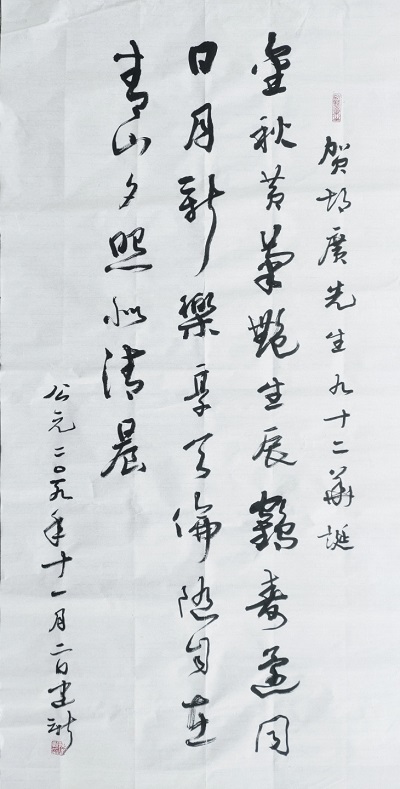 贺胡廣先生九十二華誕
金秋黄菊艷生辰鶴壽還同
日月新樂享天倫随自在
青山夕照似清晨
公元二〇一九年十一月二日建新